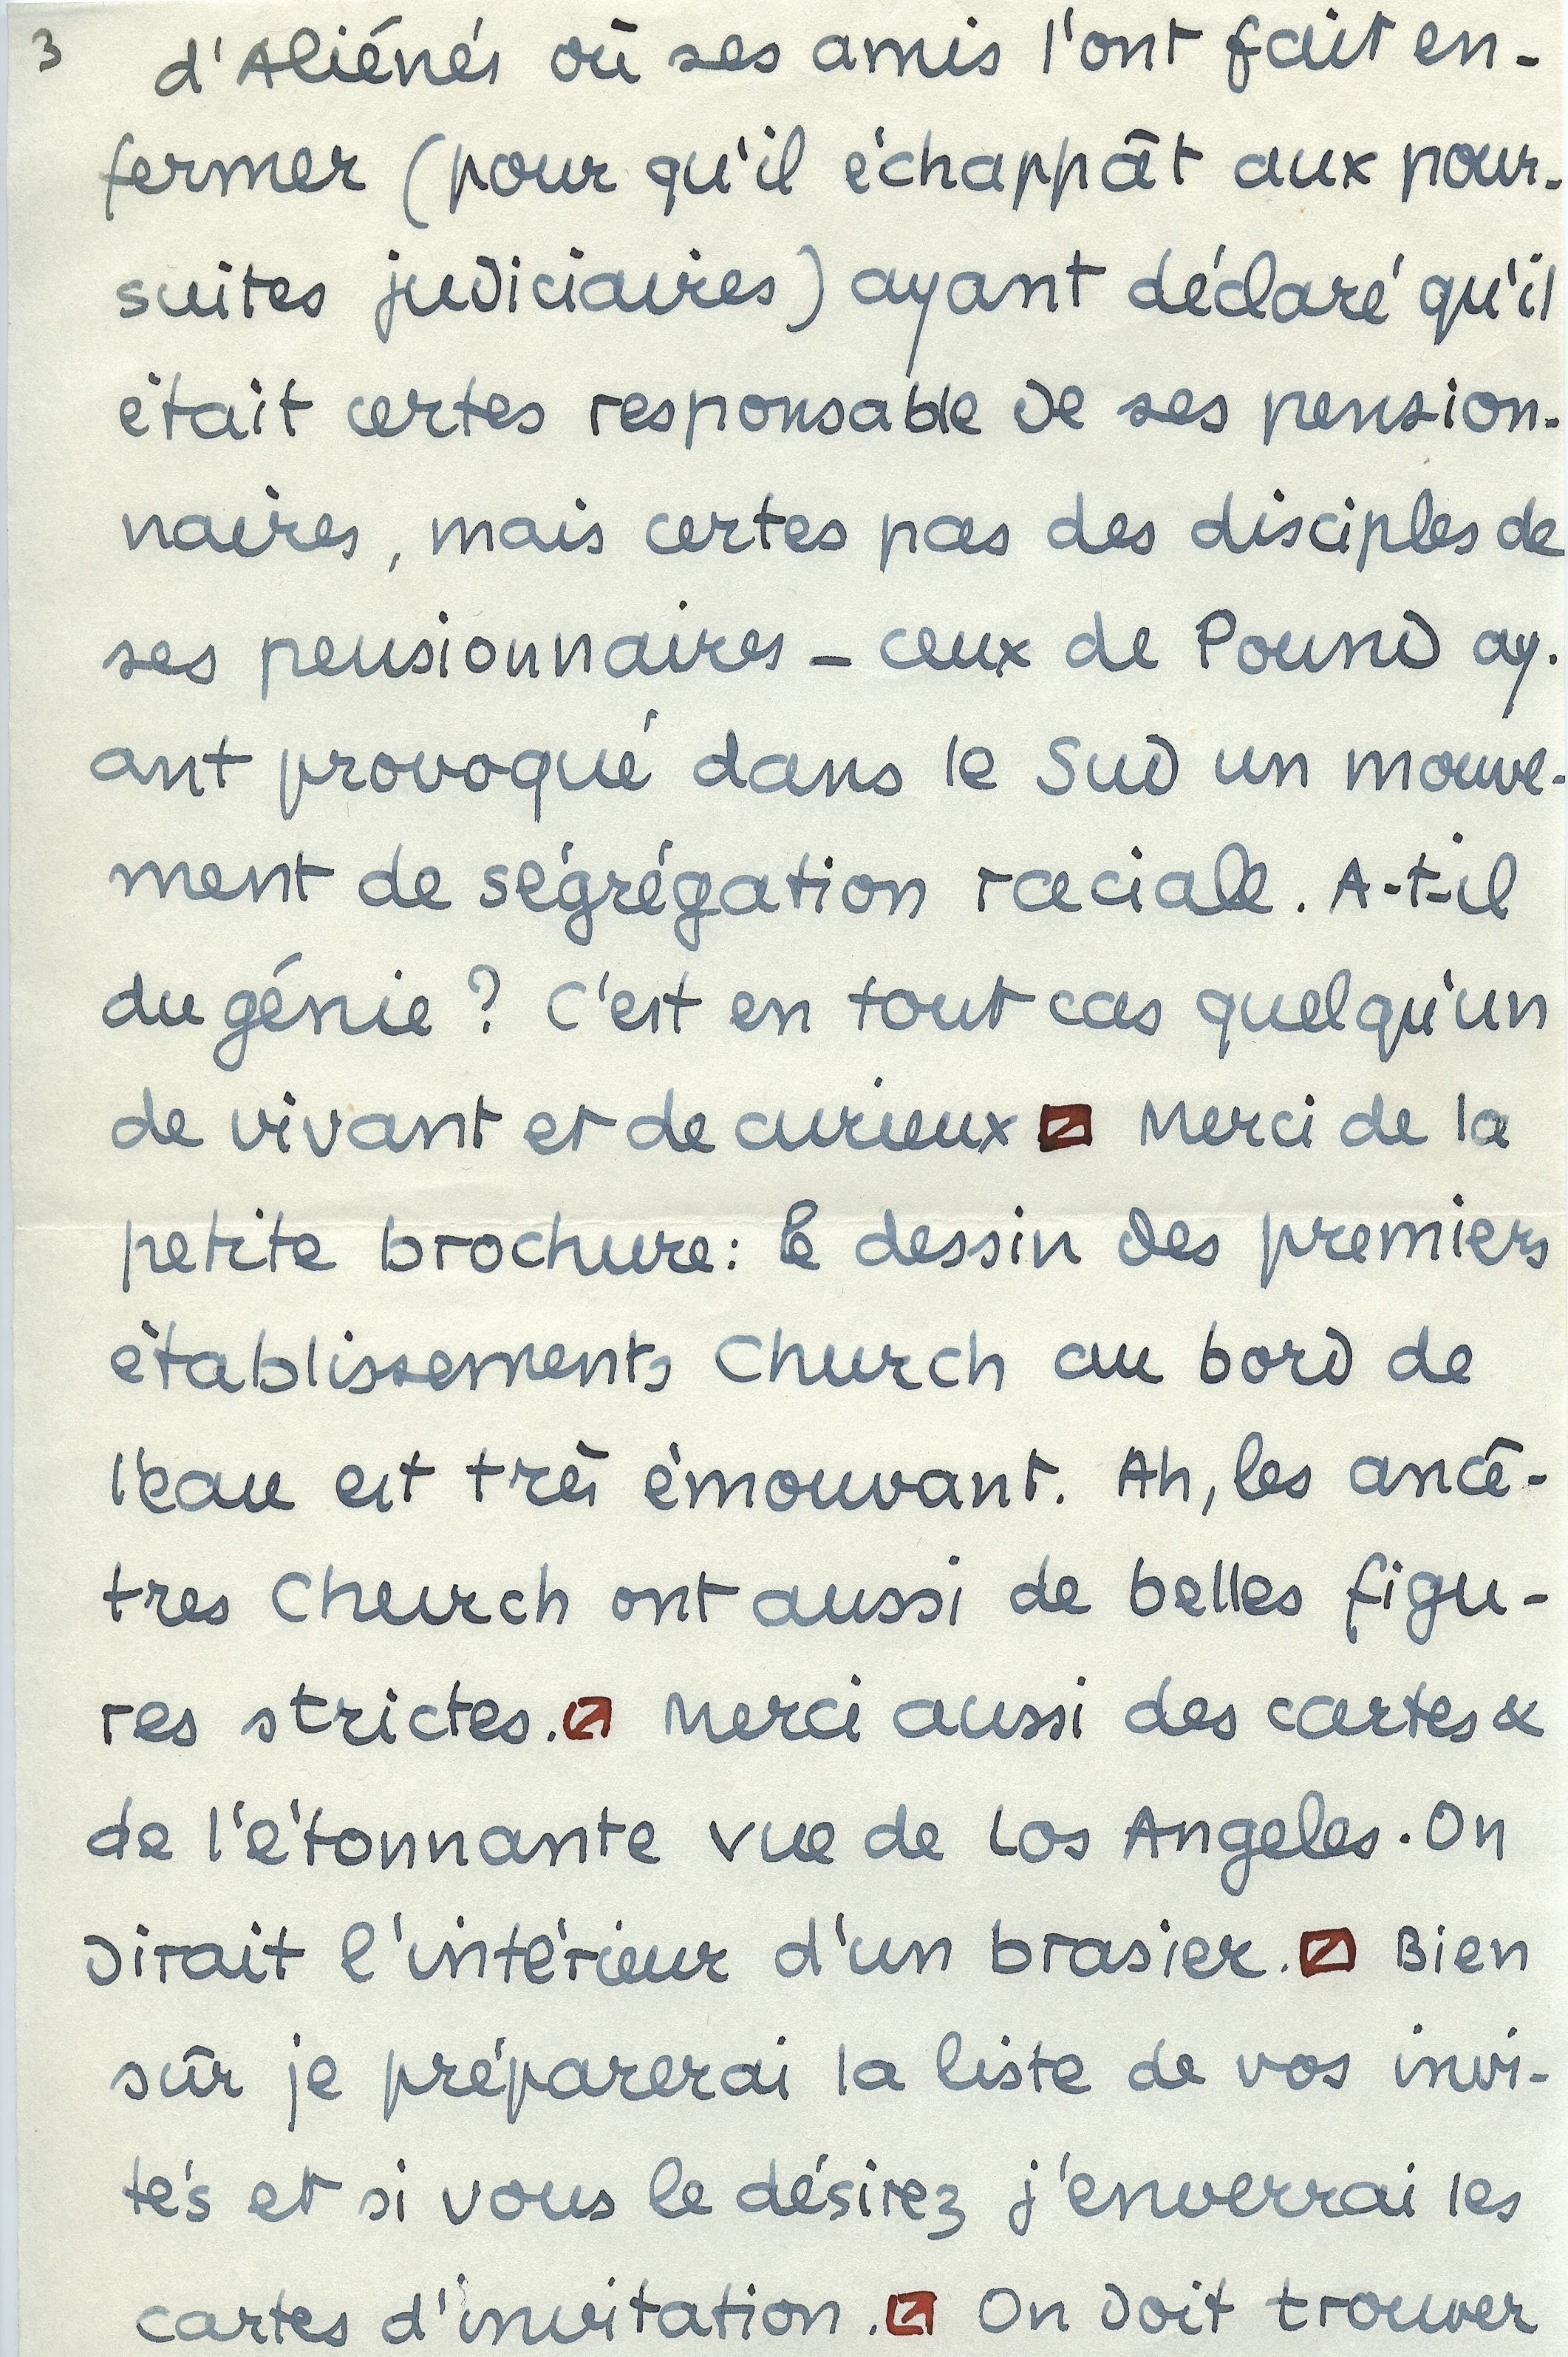 3
d'Aliénés où ses amis l'ont fait en-
fermer (pour qu'il échappât aux pour-
suites judiciaires) ayant déclaré qu'il
était certes responsable de ses pension-
naires, mais certes pas des disciples de
ses pensionnaires – ceux de Pound ay-
ant provoqué dans le Sud un mouve-
ment de ségrégation raciale. A-t-il
du génie ? C'est en tout cas quelqu'un
de vivant et de curieux Merci de la
petite brochure: le dessin des premiers
établissements Church au bord de
l'eau est très émouvant. Ah, les ancê-
tres Church ont aussi de belles figu-
res strictes. Merci aussi des cartes &
de l'étonnante vue de Los Angeles. On
dirait l'intérieur d'un brasier. Bien
sûr je préparerai la liste de vos invi-
tés et si vous le désirez j'enverrai les
cartes d'invitation. On doit trouver